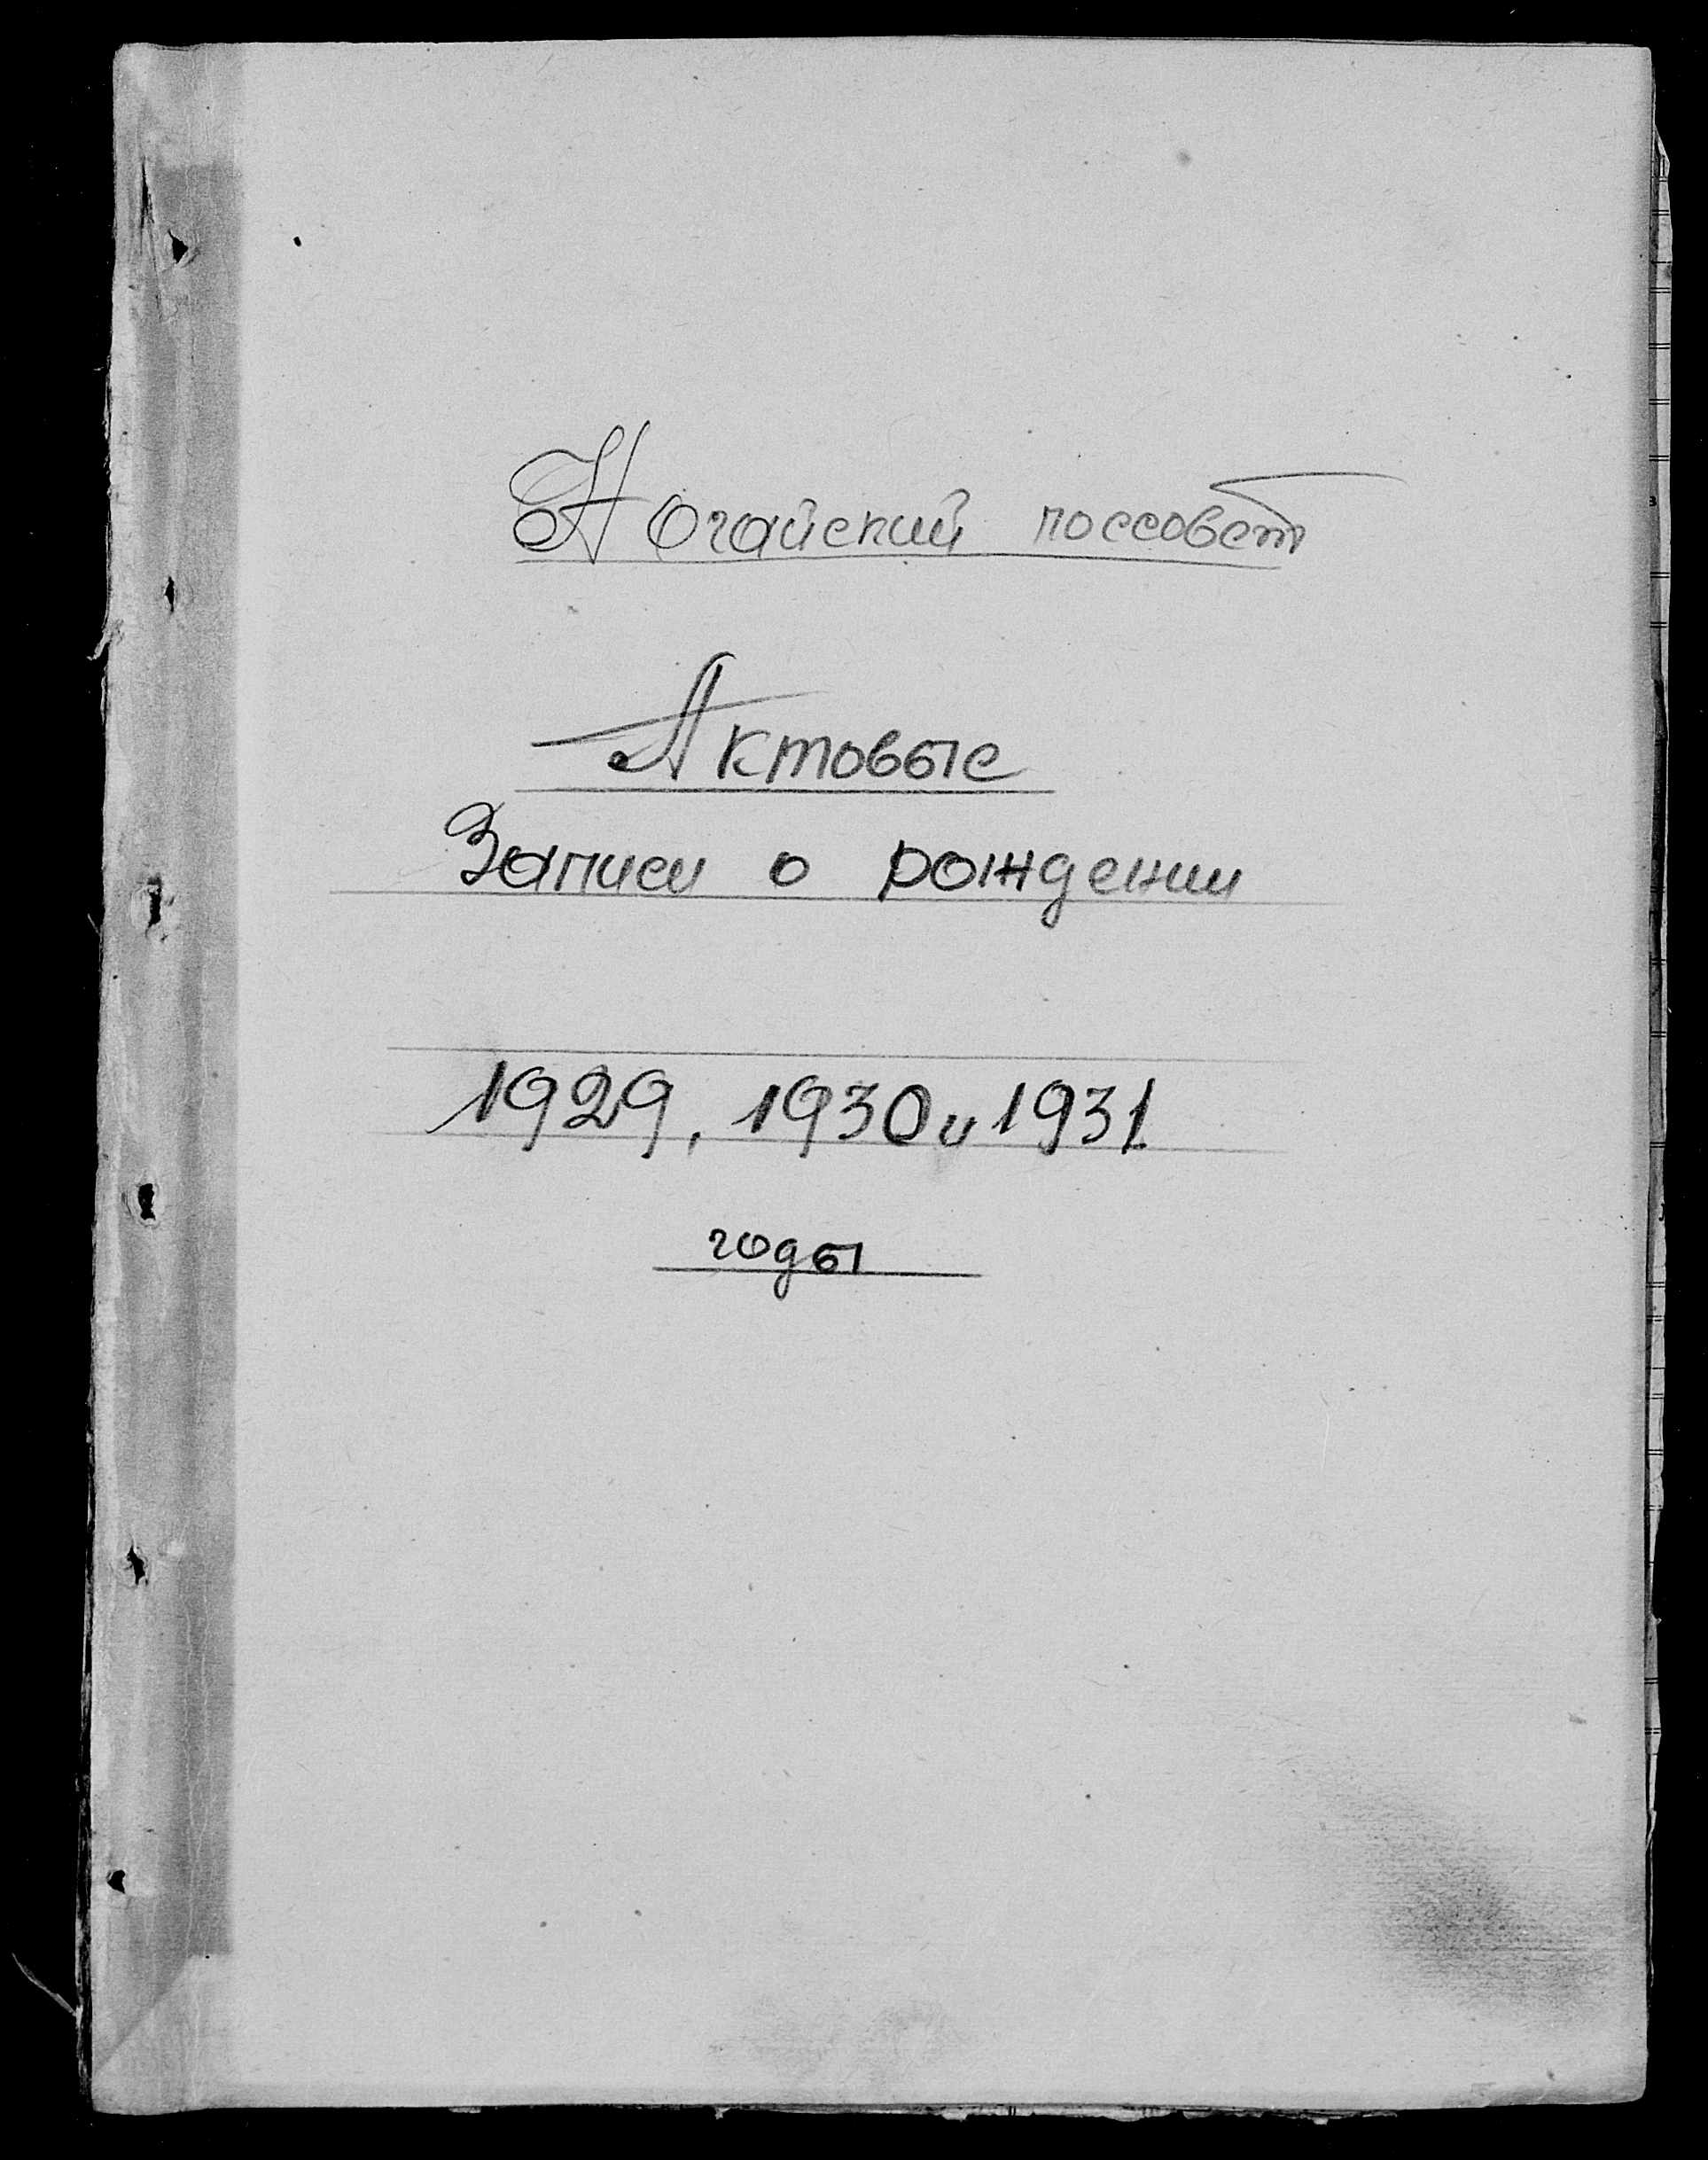 Ногайский поссовет
Актовые
Записи о рождении
1929, 1930 и 1931
годы